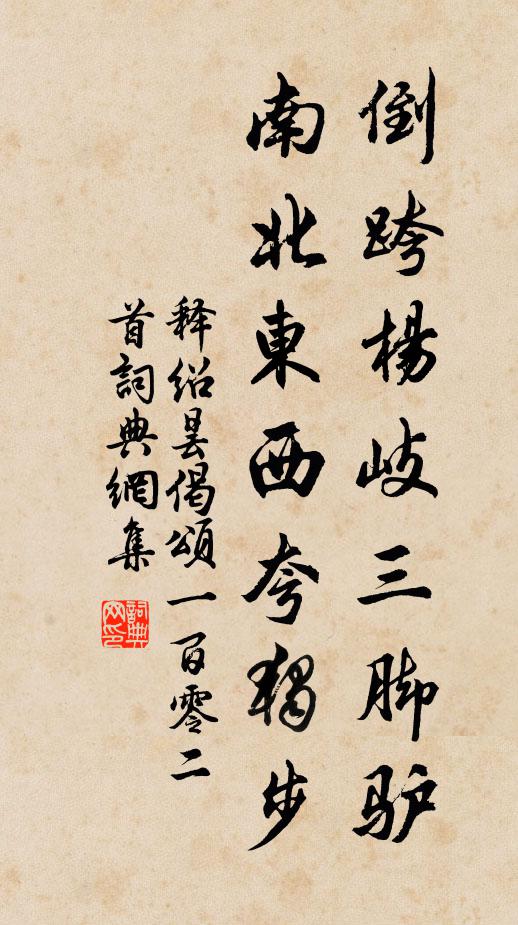 倒跨楊岐三脚驴
南北東西夸獨步
释绍昙偈頌一百零二
首詞典網集
詞典
网印